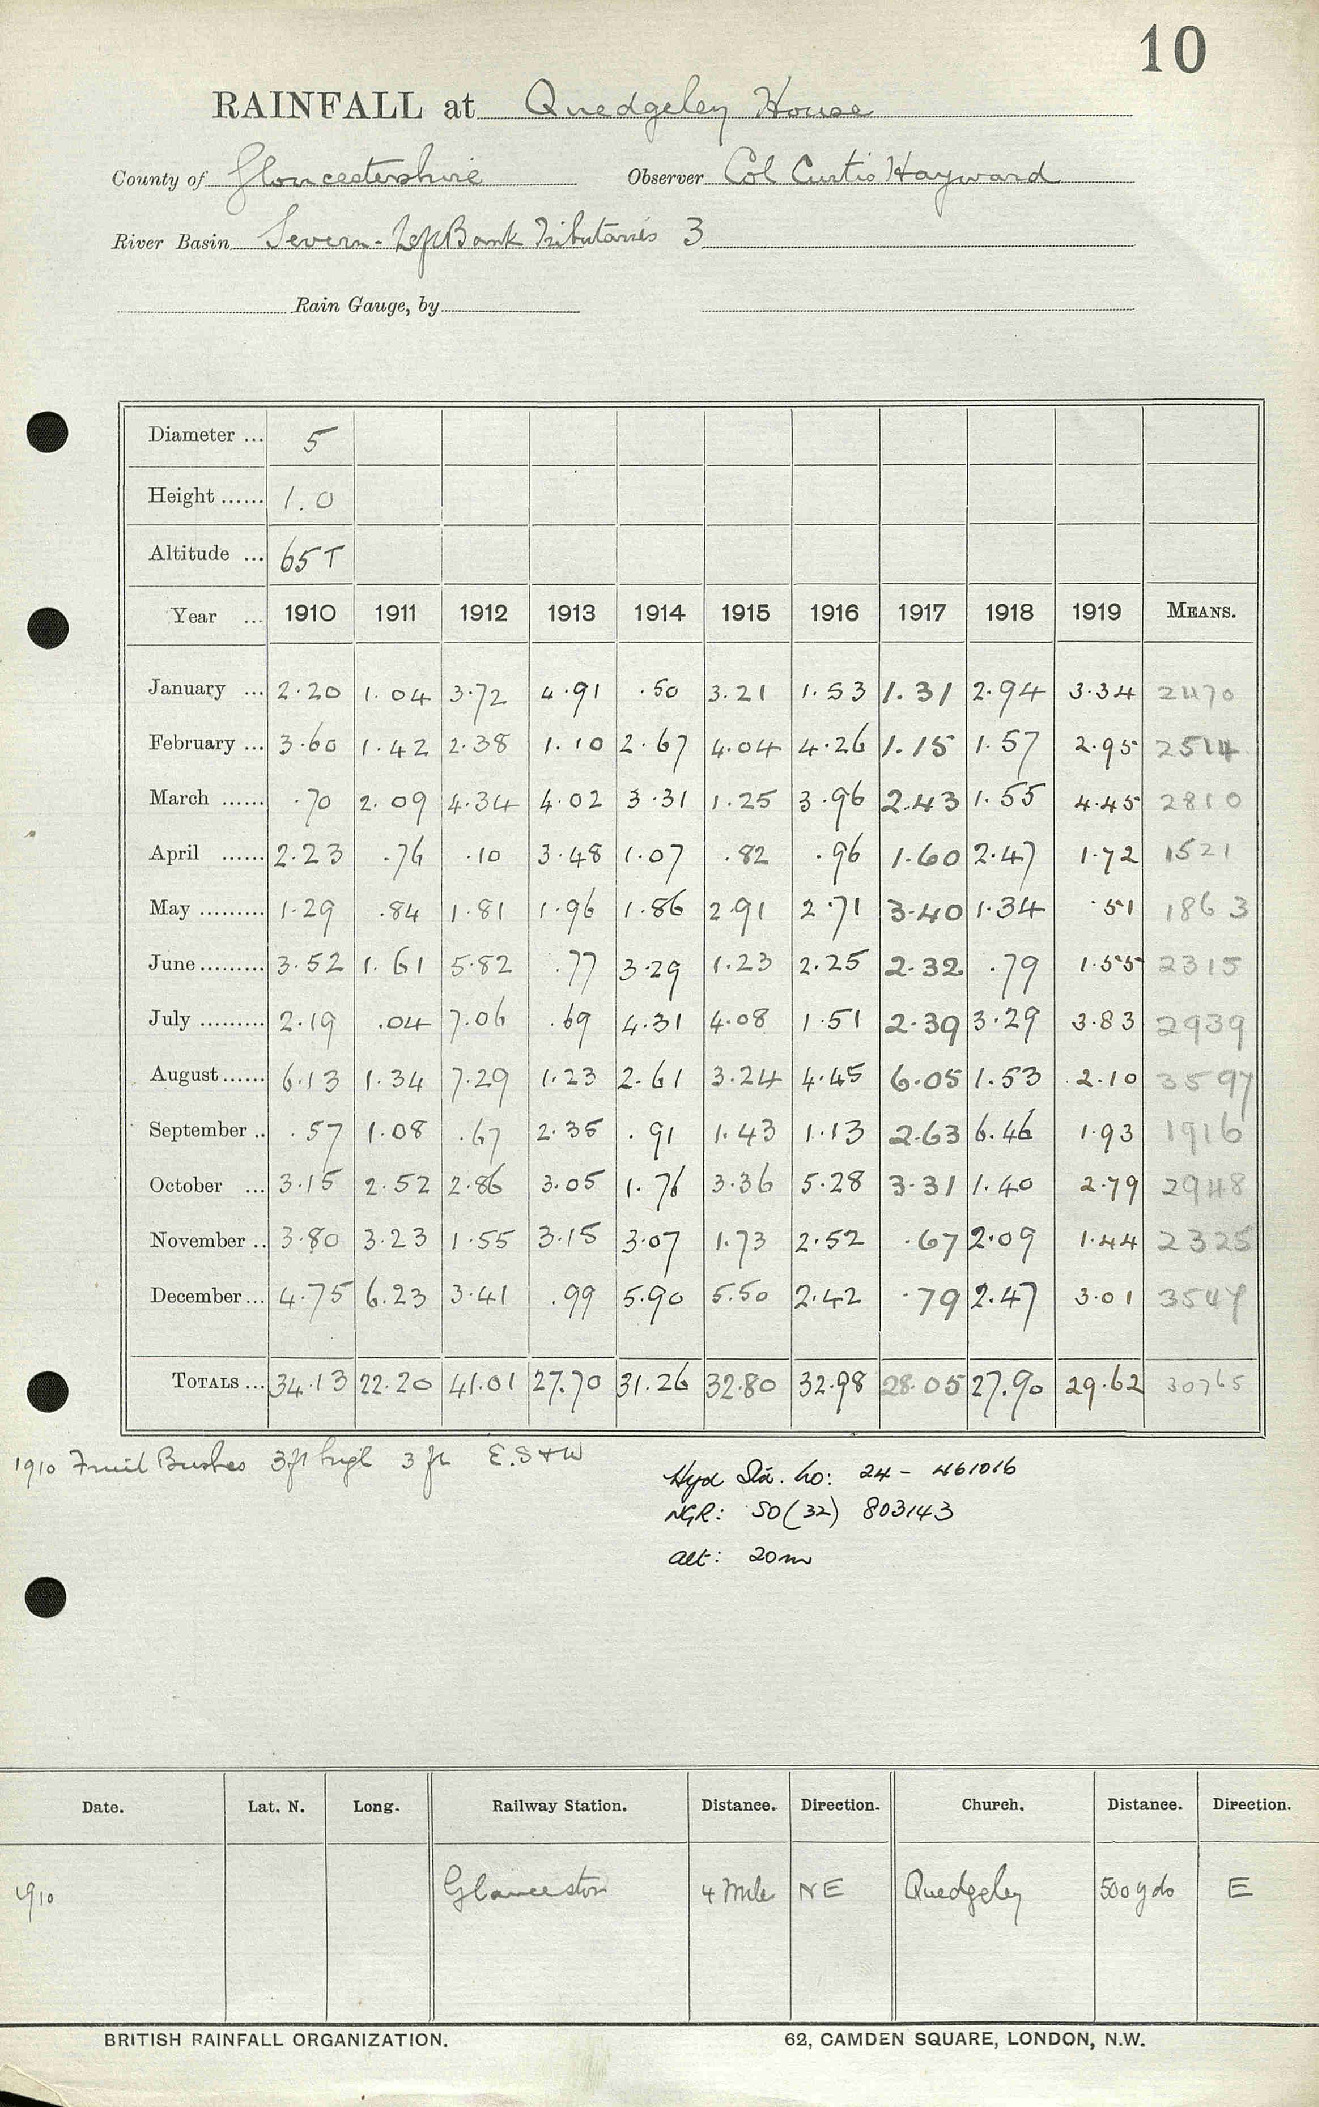 10
RAINFALL at Quedgeley House
County of Gloucestershire Observer Col Curtis Hayward
River Basin Severn - Left Bank Tributaries 3
Rain Gauge, by
Diameter ... 5
Height ...... 1.0
Altitude ... 65 T
Year ... 1910 1911 1912 1913 1914 1915 1916 1917 1918 1919 MEANS.
January ... 2.20 1.04 3.72 4.91 .50 3.21 1.53 1.31 2.94 3.34 2470
February ... 3.60 1.42 2.38 1.10 2.67 4.04 4.26 1.15 1.57 2.95 2514
March ...... .70 2.09 4.34 4.02 3.31 1.25 3.96 2.43 1.55 4.45 2810
April ...... 2.23 .76 .10 3.48 1.07 .82 .96 1.60 2.47 1.72 1521
May ......... 1.29 .84 1.81 1.96 1.86 2.91 2.71 3.40 1.34 .51 1863
June ......... 3.52 1.61 5.82 .77 3.29 1.23 2.25 2.32 .79 1.55 2315
July ......... 2.19 .04 7.06 .69 4.31 4.08 1.51 2.39 3.29 3.83 2939
August ...... 6.13 1.34 7.29 1.23 2.61 3.24 4.45 6.05 1.53 2.10 3597
September .. .57 1.08 .67 2.35 .91 1.43 1.13 2.63 6.46 1.93 1916
October ... 3.15 2.52 2.86 3.05 1.76 3.36 5.28 3.31 1.40 2.79 2948
November .. 3.80 3.23 1.55 3.15 3.07 1.73 2.52 .67 2.09 1.44 2325
December ... 4.75 6.23 3.41 .99 5.90 5.50 2.42 .79 2.47 3.01 3547
TOTALS ... 34.13 22.20 41.01 27.70 31.26 32.80 32.98 28.05 27.90 29.62 30765
1910 Fruit Bushes 3ft high 3 ft E.S+W
Hyd Sta. No: 24 - 461016
NGR: SO(32) 803143
alt: 20m
Date. Lat. N. Long. Railway Station. Distance. Direction. Church. Distance. Direction.
1910 Gloucester 4 mile NE Quedgeley 500 yds E
BRITISH RAINFALL ORGANIZATION. 62, CAMDEN SQUARE, LONDON, N.W.